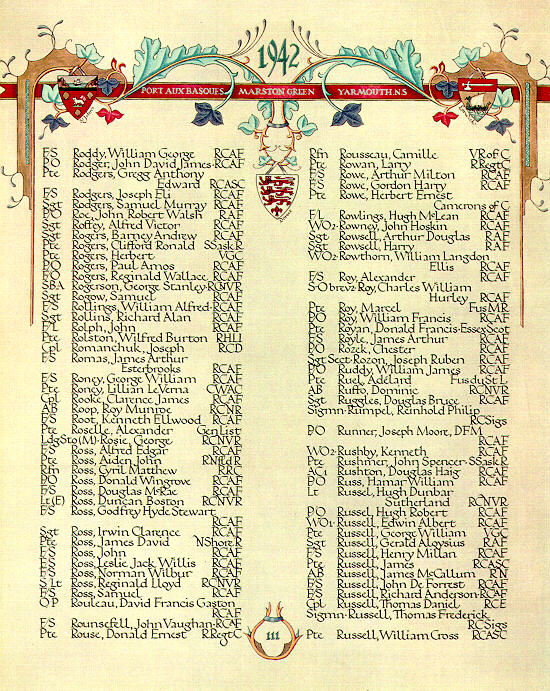 1942
PORT AUX BASQUES MARSTON GREEN YARMOUTH.N.S
F/S Roddy, William George RCAF
P/O Rodger, John David James RCAF
Pte Rodgers, Gregg Anthony
Edward RCASC
F/S Rodgers, Joseph Eli RCAF
Sgt Rodgers, Samuel Murray RCAF
P/O Roe, John Robert Walsh RAF
Sgt Roffey, Alfred Victor RCAF
Sgt Rogers, Barney Andrew RCAF
Pte Rogers, Clifford Ronald SSask R
Pte Rogers, Herbert VGC
P/O Rogers, Paul Amos RCAF
F/O Rogers, Reginald Wallace RCAF
SBA Rogerson, George Stanley RCNVR
Sgt Rogow, Samuel RCAF
F/S Rollings, William Alfred RCAF
Sgt Rollins, Richard Alan RCAF
F/L Rolph, John RCAF
Pte Rolston, Wilfred Burton RHLI
Cpl Romanchuk, Joseph RCD
F/S Romas, James Arthur
Esterbrooks RCAF
F/S Roney, George William RCAF
Pte Roney, Lillian LeVerna CWAC
Cpl Rooke, Clarence James RCAF
AB Roop, Roy Munroe RCNR
F/S Root, Kenneth Ellwood RCAF
Pte Roselle, Alexander Gen List
LdgSto(M) Rosie, George RCNVR
F/S Ross, Alfred Edgar RCAF
Pte Ross, Aiden John RNfld R
Rfn Ross, Cyril Matthew RRC
P/O Ross, Donald Wingrove RCAF
F/S Ross, Douglas McRae RCAF
Lt(E) Ross, Duncan Boston RCNVR
F/S Ross, Godfrey Hyde Stewart
RCAF
Sgt Ross, Irwin Clarence RCAF
Pte Ross, James David NShore R
F/S Ross, John RCAF
F/S Ross, Leslie Jack Willis RCAF
F/S Ross, Norman Wilbur RCAF
S/Lt Ross, Reginald Lloyd RCNVR
F/S Ross, Samuel RCAF
O/P Rouleau, David Francis Gaston
RCAF
F/S Rounsefell, John Vaughan RCAF
Pte Rouse, Donald Ernest R Regt C
Rfn Rousseau, Camille VR of C
Pte Rowan, Larry R Regt C
F/S Rowe, Arthur Milton RCAF
F/S Rowe, Gordon Harry RCAF
Pte Rowe, Herbert Ernest
Camerons of C
F/L Rowlings, Hugh McLean RCAF
WO2 Rowney, John Hoskin RCAF
Sgt Rowsell, Arthur Douglas RAF
Sgt Rowsell, Harry RAF
WO2 Rowthorn, William Langdon
Ellis RCAF
F/S Roy, Alexander RCAF
S/O brev2 Roy, Charles William
Hurley RCAF
Pte Roy, Marcel Fus MR
P/O Roy, William Francis RCAF
Pte Royan, Donald Francis Essex Scot
F/S Royle, James Arthur RCAF
P/O Rozek, Chester RCAF
Sgt Sect Rozon, Joseph Ruben RCAF
P/O Ruddy, William James RCAF
Pte Ruel, Adelard Fus du St L
AB Ruffo, Dominic RCNVR
Sgt Ruggles, Douglas Bruce RCAF
Sigmn Rumpel, Reinhold Philip
RCSigs
P/O Runner, Joseph Moore, DFM
RCAF
WO2 Rushby, Kenneth RCAF
Pte Rushmer, John Spencer SSask R
AC1 Rushton, Douglas Haig RCAF
P/O Russ, Hamar William RCAF
Lt Russel, Hugh Dunbar
Sutherland RCNVR
P/O Russel, Hugh Robert RCAF
WO1 Russell, Edwin Albert RCAF
Pte Russell, George William VGC
Sgt Russell, Gerald Aloysius RAF
F/S Russell, Henry Millan RCAF
Pte Russell, James RCASC
AB Russell, James McCallum RN
F/S Russell, John De Forrest RCAF
F/S Russell, Richard Anderson RCAF
Cpl Russell, Thomas Daniel RCE
Sigmn Russell, Thomas Frederick
RCSigs
Pte Russell, William Cross RCASC
111